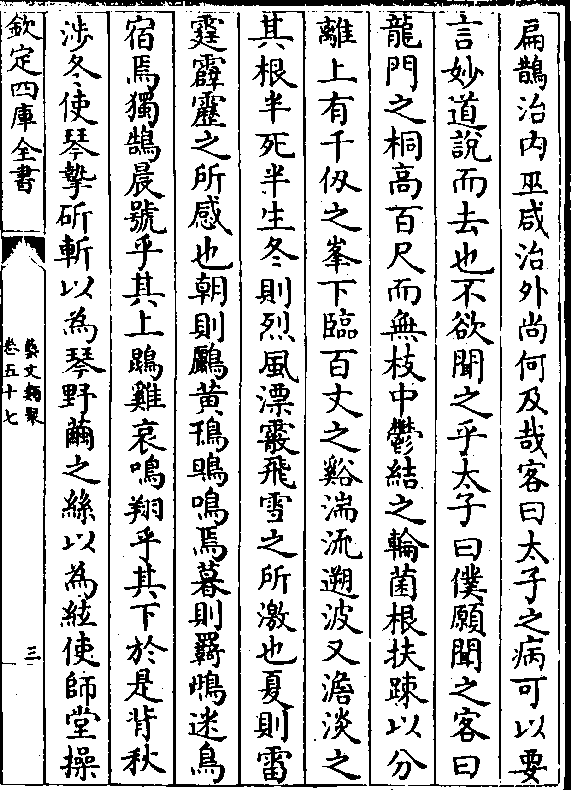 扁鵲治内巫咸治外尚何及哉客曰太子之病可以要
言妙道說而去也不欲聞之乎太子曰僕願聞之客曰
龍門之桐高百尺而無枝中鬱結之輪菌根扶踈以分
離上有千仭之峯下臨百丈之谿湍流遡波又澹淡之
其根半死半生冬則烈風漂霰飛雪之所激也夏則雷
霆霹靂之所感也朝則鸝黃鳱鴠鳴焉暮則羇鴠迷鳥
宿焉獨鵠晨號乎其上鵾雞哀鳴翔乎其下於是背秋
涉冬使琴摯斫斬以為琴野繭之絲以為絃使師堂操
欽定四庫全書
藝文類聚
卷五十七
三